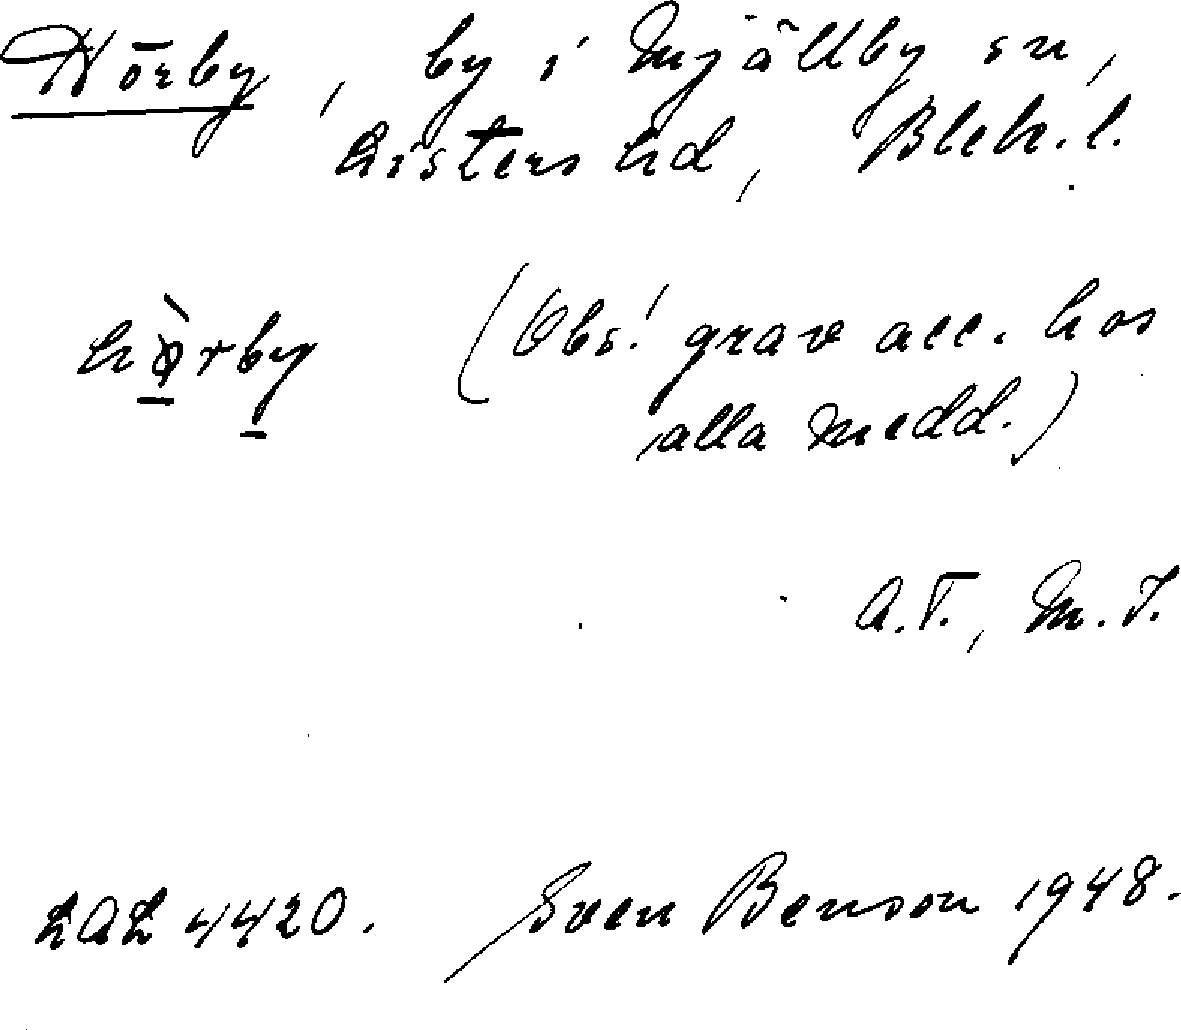 Hörby, by i Mjällby sn,
Listers hd, Blek. l.
hö̀rby (Obs! grave acc. hos
alla medd.)
A.T., M.T.
LAL 4420. Sven Benson 1948.